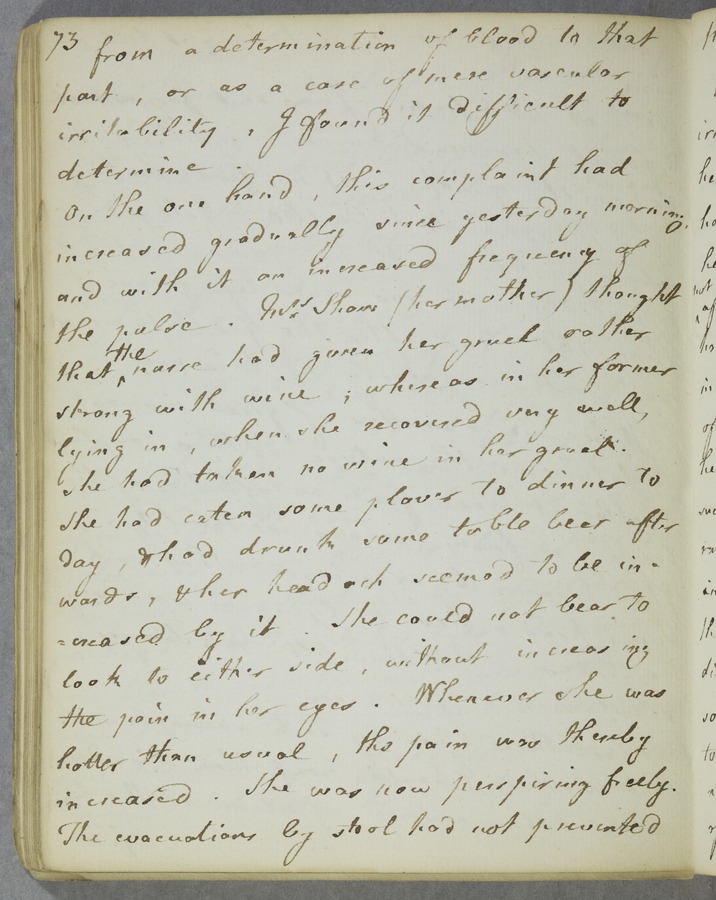 73
from a determination of blood to that
part, or as a case of mere vascular
irritability, I found it difficult to
determine.
On the one hand, this complaint had
increased gradually since yesterday morning,
and with it an increased frequency of
the pulse. Mrs Shore (her mother) thought
that the nurse had given her gruel rather
strong with wine; whereas in her former
lying in, when she recovered very well,
she had taken no wine in her gruel.
She had eaten some plover to dinner to
day, & had drunk some table beer after
wards, & her head ach seemed to be in-
=creased by it. She could not bear to
look to either side, without increasing
the pain in her eyes. Whenever she was
hotter than usual, the pain was thereby
increased. She was now perspiring freely.
The evacuations by stool had not prevented